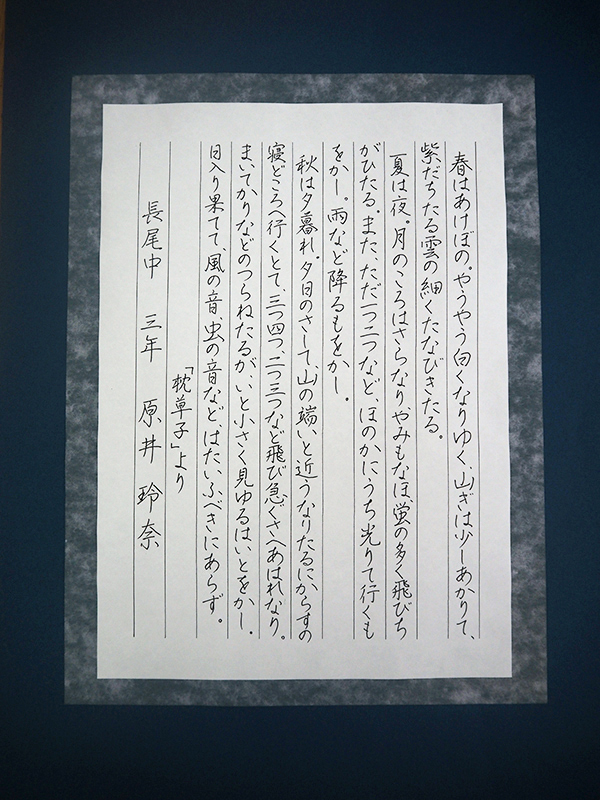 春はあけぼの。やうやう白くなりゆく、山ぎは少しあかりて、
紫だちたる雲の細くたなびきたる。
夏は夜。月のころはさらなりやみもなほ、蛍の多く飛びち
がひたる。また、ただ一つ二つなど、ほのかにうち光りて行くも
をかし。雨など降るもをかし。
秋は夕暮れ。夕日のさして、山の端いと近うなりたるにからすの
寝どころへ行くとて、三つ四つ、二つ三つなど飛び急ぐさへあはれなり。
まいてかりなどのつらねたるが、いと小さく見ゆるはいとをかし。
日入り果てて、風の音、虫の音など、はたいふべきにあらず。
「枕草子」より
長尾中 三年 原井 玲奈